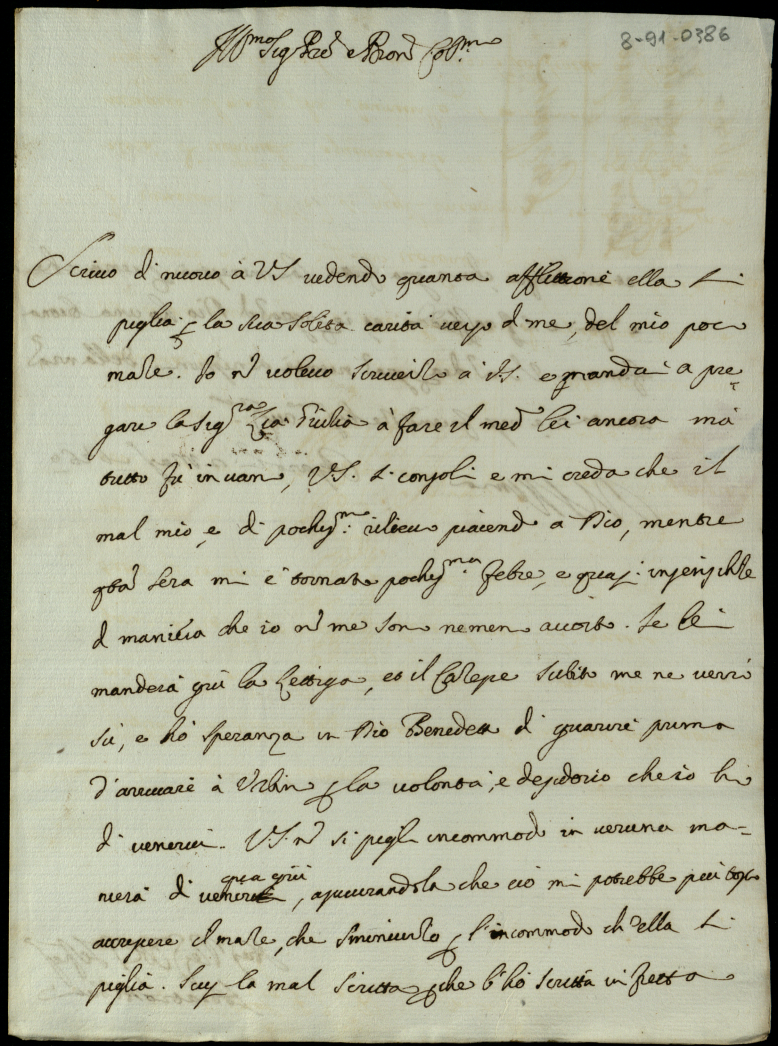 8-91-0386
Ill.mo Sig Pre e Pron Col.mo
Scrivo di nuovo à VS vedendo quanta afflittione ella si
piglia p la sua solita carità verso d me, del mio poco
male. Io nō volevo scriverlo a VS. e mandai a pre-
gare la Sig.ra Zia Giulia à fare il med.o lei ancora mà
tutto fù in vano, VS. si consoli e mi creda che il
mal mio, e di pochiss.mo rilievo piacendo a Dio, mentre
qta sera mi è tornata pochiss.ma febre, e quasi insensibile
d maniera che io nō me son nemeno accorto. Se lei
manderà giù la Lettiga, et il Calepe subito me ne verrò
sù, e hò speranza in Dio Benedetto di guarire prima
d'arrivare à Urbino p la volontà, e desiderio che io hò
di venirvi. VS. nō si pigli incommodo in veruna ma-
niera di venire qua giù, assicurandola che ciò mi potrebbe più tosto
accrescere il male, che sminuirlo p l'incommodo ch'ella si
piglia. Scusi la mal scritta p che l'hò scritta in fretta